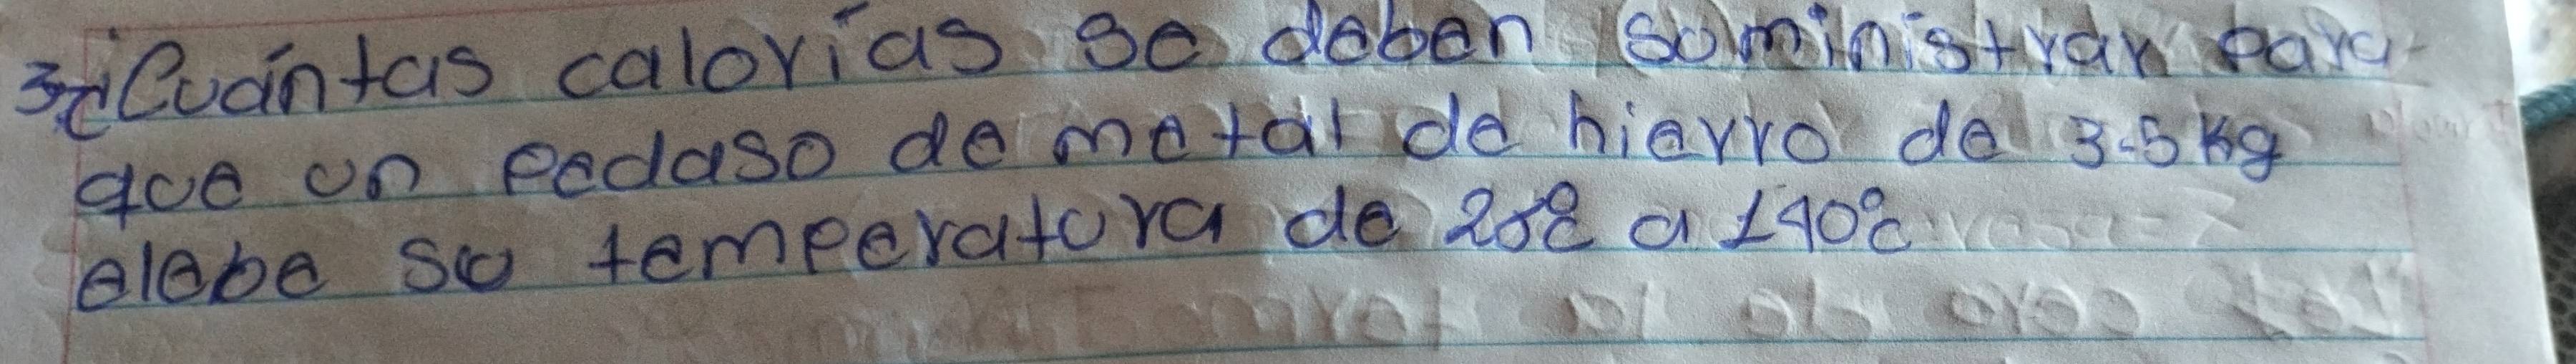 3-¿Cuántas calorías se deben suministrar para
que un pedaso de metal de hierro de 3.5 kg
elebe su temperatura de 20°C a 140°C